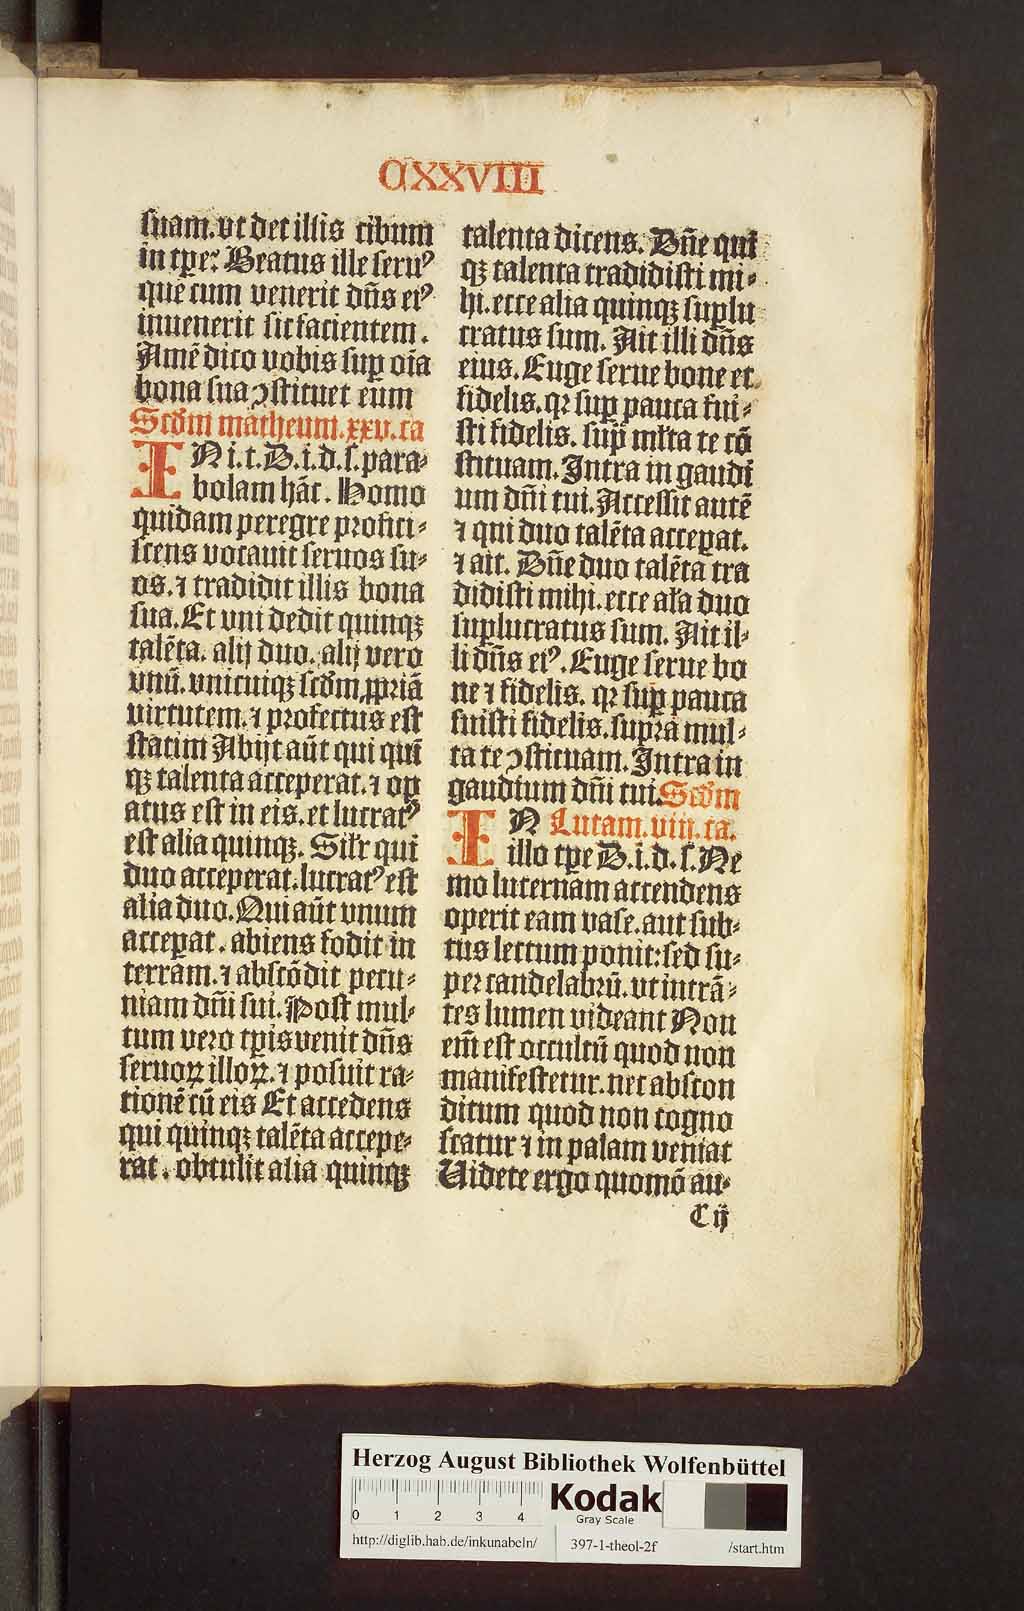 CXXVIII
suam. vt det illis cibum
in tꝑe? Beatus ille seruꝰ
quē cum venerit dn̄s eiꝰ
inuenerit sic facientem.
Amē dico vobis suꝑ oīa
bona sua ꝯstituet eum
Scd̓m matheum. xxv. ca
IN i. t. D. i. d. s. para-
bolam hāc. Homo
quidam peregre profici-
scens vocauit seruos su-
os. ⁊ tradidit illis bona
sua. Et vni dedit quinqꝫ
talēta. alij duo. alij vero
vnū. vnicuiqꝫ scd̓m ꝓpriā
virtutem. ⁊ profectus est
statim Abijt aūt qui quī
qꝫ talenta acceperat. ⁊ oꝑ
atus est in eis. et lucratꝰ
est alia quinqꝫ. Sil̓r qui
duo acceperat. lucratꝰ est
alia duo. Qui aūt vnum
acceꝑat. abiens fodit in
terram. ⁊ abscōdit pecu-
niam dn̄i sui. Post mul-
tum vero tꝑis venit dn̄s
seruoꝝ illoꝝ. ⁊ posuit ra-
tionē cū eis Et accedens
qui quinqꝫ talēta accepe-
rat. obtulit alia quinqꝫ
talenta dicens. Dn̄e quī
qꝫ talenta tradidisti mi-
hi. ecce alia quinqꝫ suꝑlu
cratus sum. Ait illi dn̄s
eius. Euge serue bone et
fidelis. qꝛ suꝑ pauca fui-
sti fidelis. sup̄ ml̓ta te cō
stituam. Intra in gaudi
um dn̄i tui. Accessit autē
⁊ qui duo talēta acceꝑat.
⁊ ait. Dn̄e duo talēta tra
didisti mihi. ecce al̓a duo
suꝑlucratus sum. Ait il-
li dn̄s eiꝰ. Euge serue bo
ne ⁊ fidelis. qꝛ suꝑ pauca
fuisti fidelis. supra mul-
ta te ꝯstituam. Intra in
gaudium dn̄i tui. Scd̓m
IN Lucam. viii. ca.
illo tꝑe D. i. d. s. Ne
mo lucernam accendens
operit eam vase. aut sub-
tus lectum ponit: sed su-
per candelabrū. vt intrā-
tes lumen videant Non
em̄ est occultū quod non
manifestetur. nec abscon
ditum quod non cogno
scatur ⁊ in palam veniat
Uidete ergo quomō au-
C ij
Herzog August Bibliothek Wolfenbüttel
0 1 2 3 4
Kodak
Gray Scale
http://diglib.hab.de/inkunabeln/ 397-1-theol-2f /start.htm